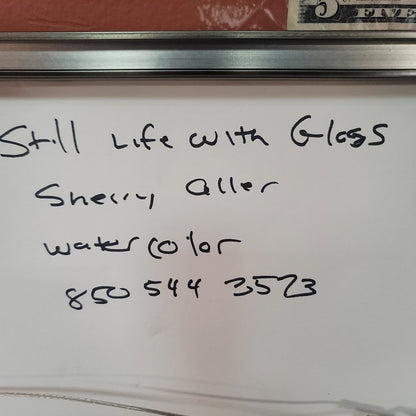 5
FIVE
Still Life with Glass
Sherry Aller
watercolor
850 544 3523